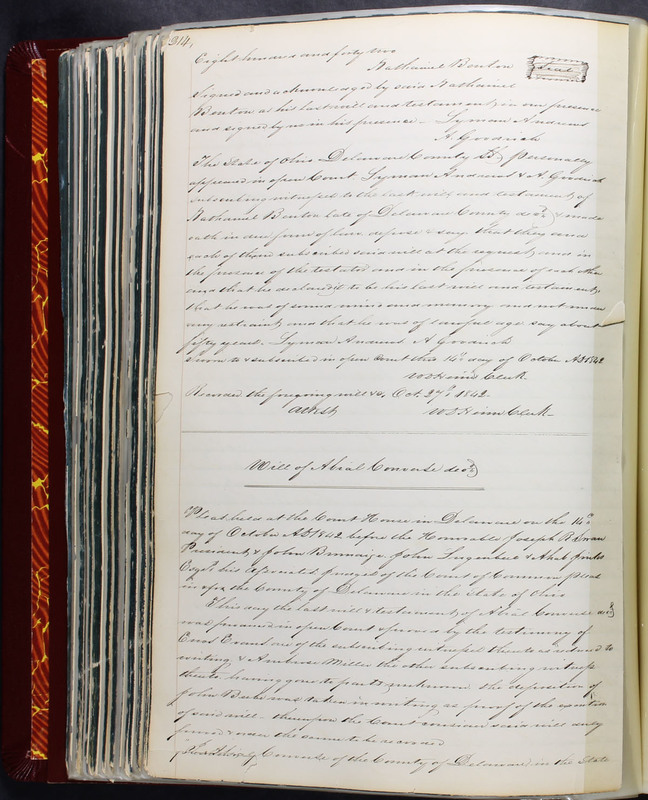 314
Eight hundred and forty two
Nathaniel Benton seal
Signed and acknowledged by said Nathaniel
Benton as his last will and testament, in our presence
and signed by us in his presence - Lyman Andrews
A. Goodrich
The State of Ohio Delaware County Ss, personally
appeared in open Court Lyman Andrews & A. Goodrich
subscribing witnesses to the last will and testament of
Nathaniel Benton late of Delaware County decd & made
oath in due form of law depose & say that they and
each of them subscribed said will at the request and in
the presence of the testator and in the presence of each other
and that he declared it to be his last will and testament,
that he was of sound mind and memory and not under
any restraint and that he was of lawful age say about
fifty years. Lyman Andrews A. Goodrich
Sworn to & subscribed in open Court this 14th day of October AD 1842
Clerk
Recorded the foregoing will &c, Oct. 27th 1842
attest Clerk
Will of Abial Converse decd
Pleas held at the Court House in Delaware on the 14th
day of October AD 1842 before the Honorable Joseph R Swan
President, & John & Ahab Jinks
Esqrs his Associates Judges of the Court of Common pleas
in & for the County of Delaware in the State of Ohio
This day the last will & testament of Abial Converse decd
was produced in open Court & proved by the testimony of
one of the subscribing witnesses thereto as reduced to
writing, & Ambrose Miller the other subscribing witness
thereto having gone to parts unknown the deposition of
John was taken in writing as proof of the execution
of said will - thereupon the Court consider said will duly
proved & order the same to be recorded
Converse of the County of Delaware in the State